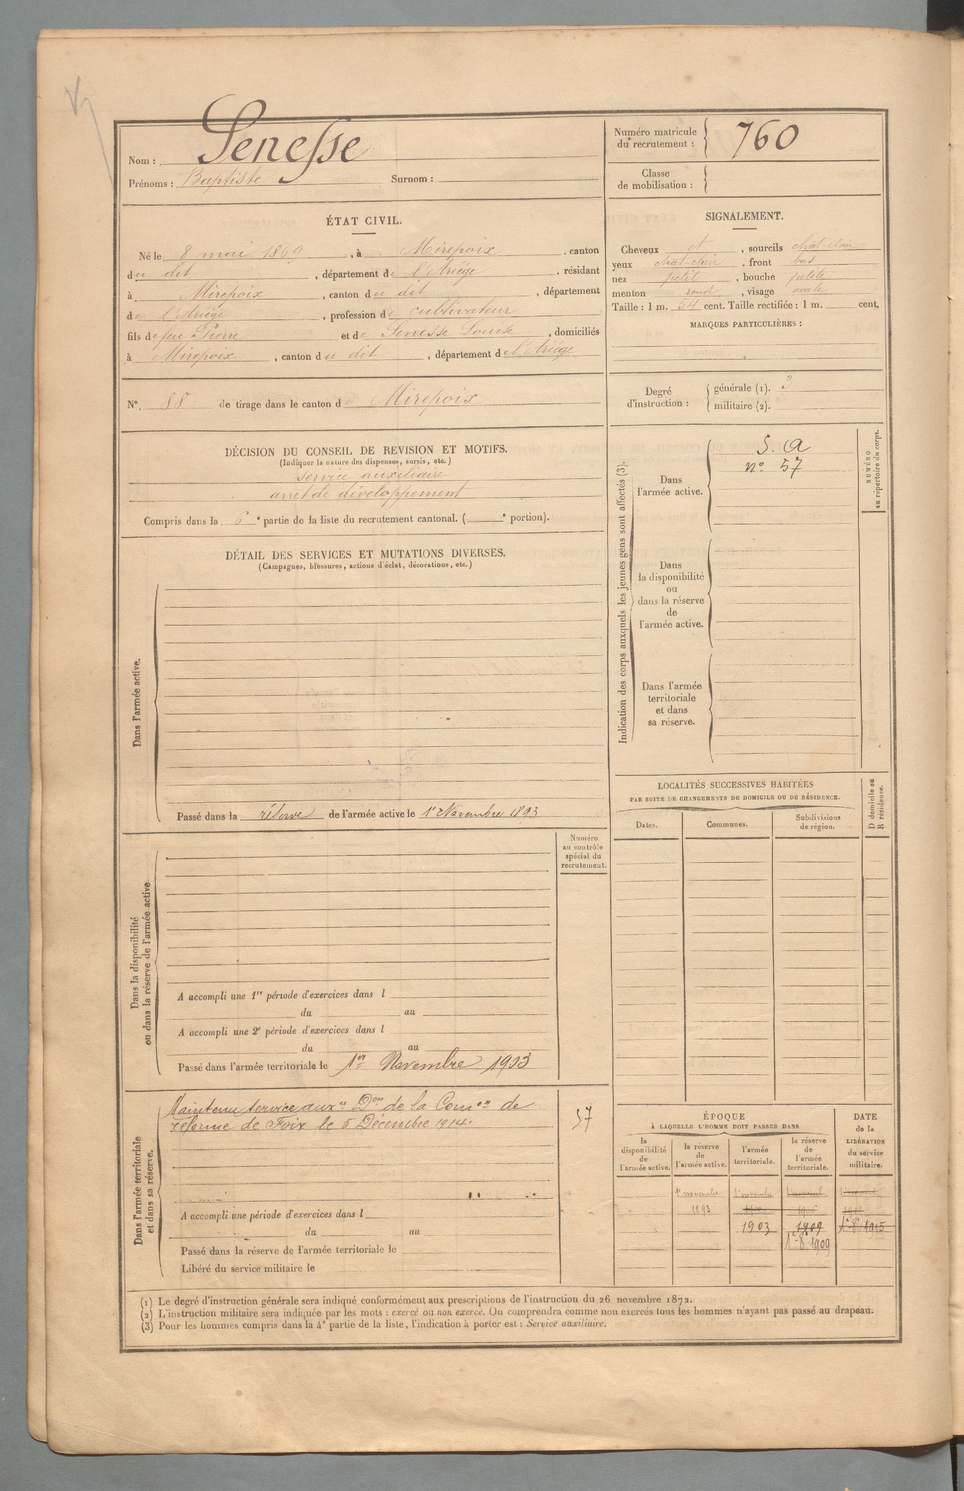 Nom : Senesse
Prénoms : Baptiste Surnom :
Numéro matricule du recrutement : 760
Classe de mobilisation :
ÉTAT CIVIL.
Né le 8 mai 1869, à Mirepoix, canton
du dit, département de l'Ariège. résidant
à Mirepoix, canton du dit, département
de l'Ariège, profession de cultivateur
fils de feu Pierre et de Senesse, domiciliés
à Mirepoix, canton du dit, département de l'Ariège
N° 88 de tirage dans le canton de Mirepoix
SIGNALEMENT.
Cheveux et, sourcils chat-clair
yeux chat-clair. front bas
nez petit, bouche petite
menton rond, visage ovale
Taille : 1 m. 54 cent. Taille rectifiée : 1 m. cent.
MARQUES PARTICULIÈRES :
Degré d'instruction : générale (1). 3
militaire (2).
DÉCISION DU CONSEIL DE REVISION ET MOTIFS.
(Indiquer la nature des dispenses, sursis, etc.)
Service auxiliaire
arrêt de développement
Compris dans la 6e partie de la liste du recrutement cantonal. ( e portion).
DÉTAIL DES SERVICES ET MUTATIONS DIVERSES.
(Campagnes, blessures, actions d'éclat, décorations, etc.)
Dans l'armée active.
Passé dans la réserve de l'armée active le 1er Novembre 1893
Indication des corps auxquels les jeunes gens sont affectés (3).
Dans l'armée active.
S. A
n° 57
NUMÉRO au répertoire du corps.
Dans la disponibilité ou dans la réserve de l'armée active.
Dans l'armée territoriale et dans sa réserve.
LOCALITÉS SUCCESSIVES HABITÉES
PAR SUITE DE CHANGEMENTS DE DOMICILE OU DE RÉSIDENCE.
Dates. Communes. Subdivisions de région.
D domicile ou R résidence.
Dans la disponibilité ou dans la réserve de l'armée active
Numéro au contrôle spécial du recrutement.
A accompli une 1re période d'exercices dans l
du au
A accompli une 2e période d'exercices dans l
du au
Passé dans l'armée territoriale le 1er Novembre 1903
Dans l'armée territoriale et dans sa réserve.
Maintenu service auxre Don de la Comon de
réforme de Foix le 5 Décembre 1914.
57
A accompli une période d'exercices dans l
du au
Passé dans la réserve de l'armée territoriale le
Libéré du service militaire le
ÉPOQUE
À LAQUELLE L'HOMME DOIT PASSER DANS
la disponibilité de l'armée active.
la réserve de l'armée active.
l'armée territoriale.
la réserve de l'armée territoriale.
DATE de la LIBÉRATION du service militaire.
1er novembre
1893
1903 1909 1-8-1915
1-8-1909
(1) Le degré d'instruction générale sera indiqué conformément aux prescriptions de l'instruction du 26 novembre 1872.
(2) L'instruction militaire sera indiquée par les mots : exercé ou non exercé. On comprendra comme non exercés tous les hommes n'ayant pas passé au drapeau.
(3) Pour les hommes compris dans la 4e partie de la liste, l'indication à porter est : Service auxiliaire.